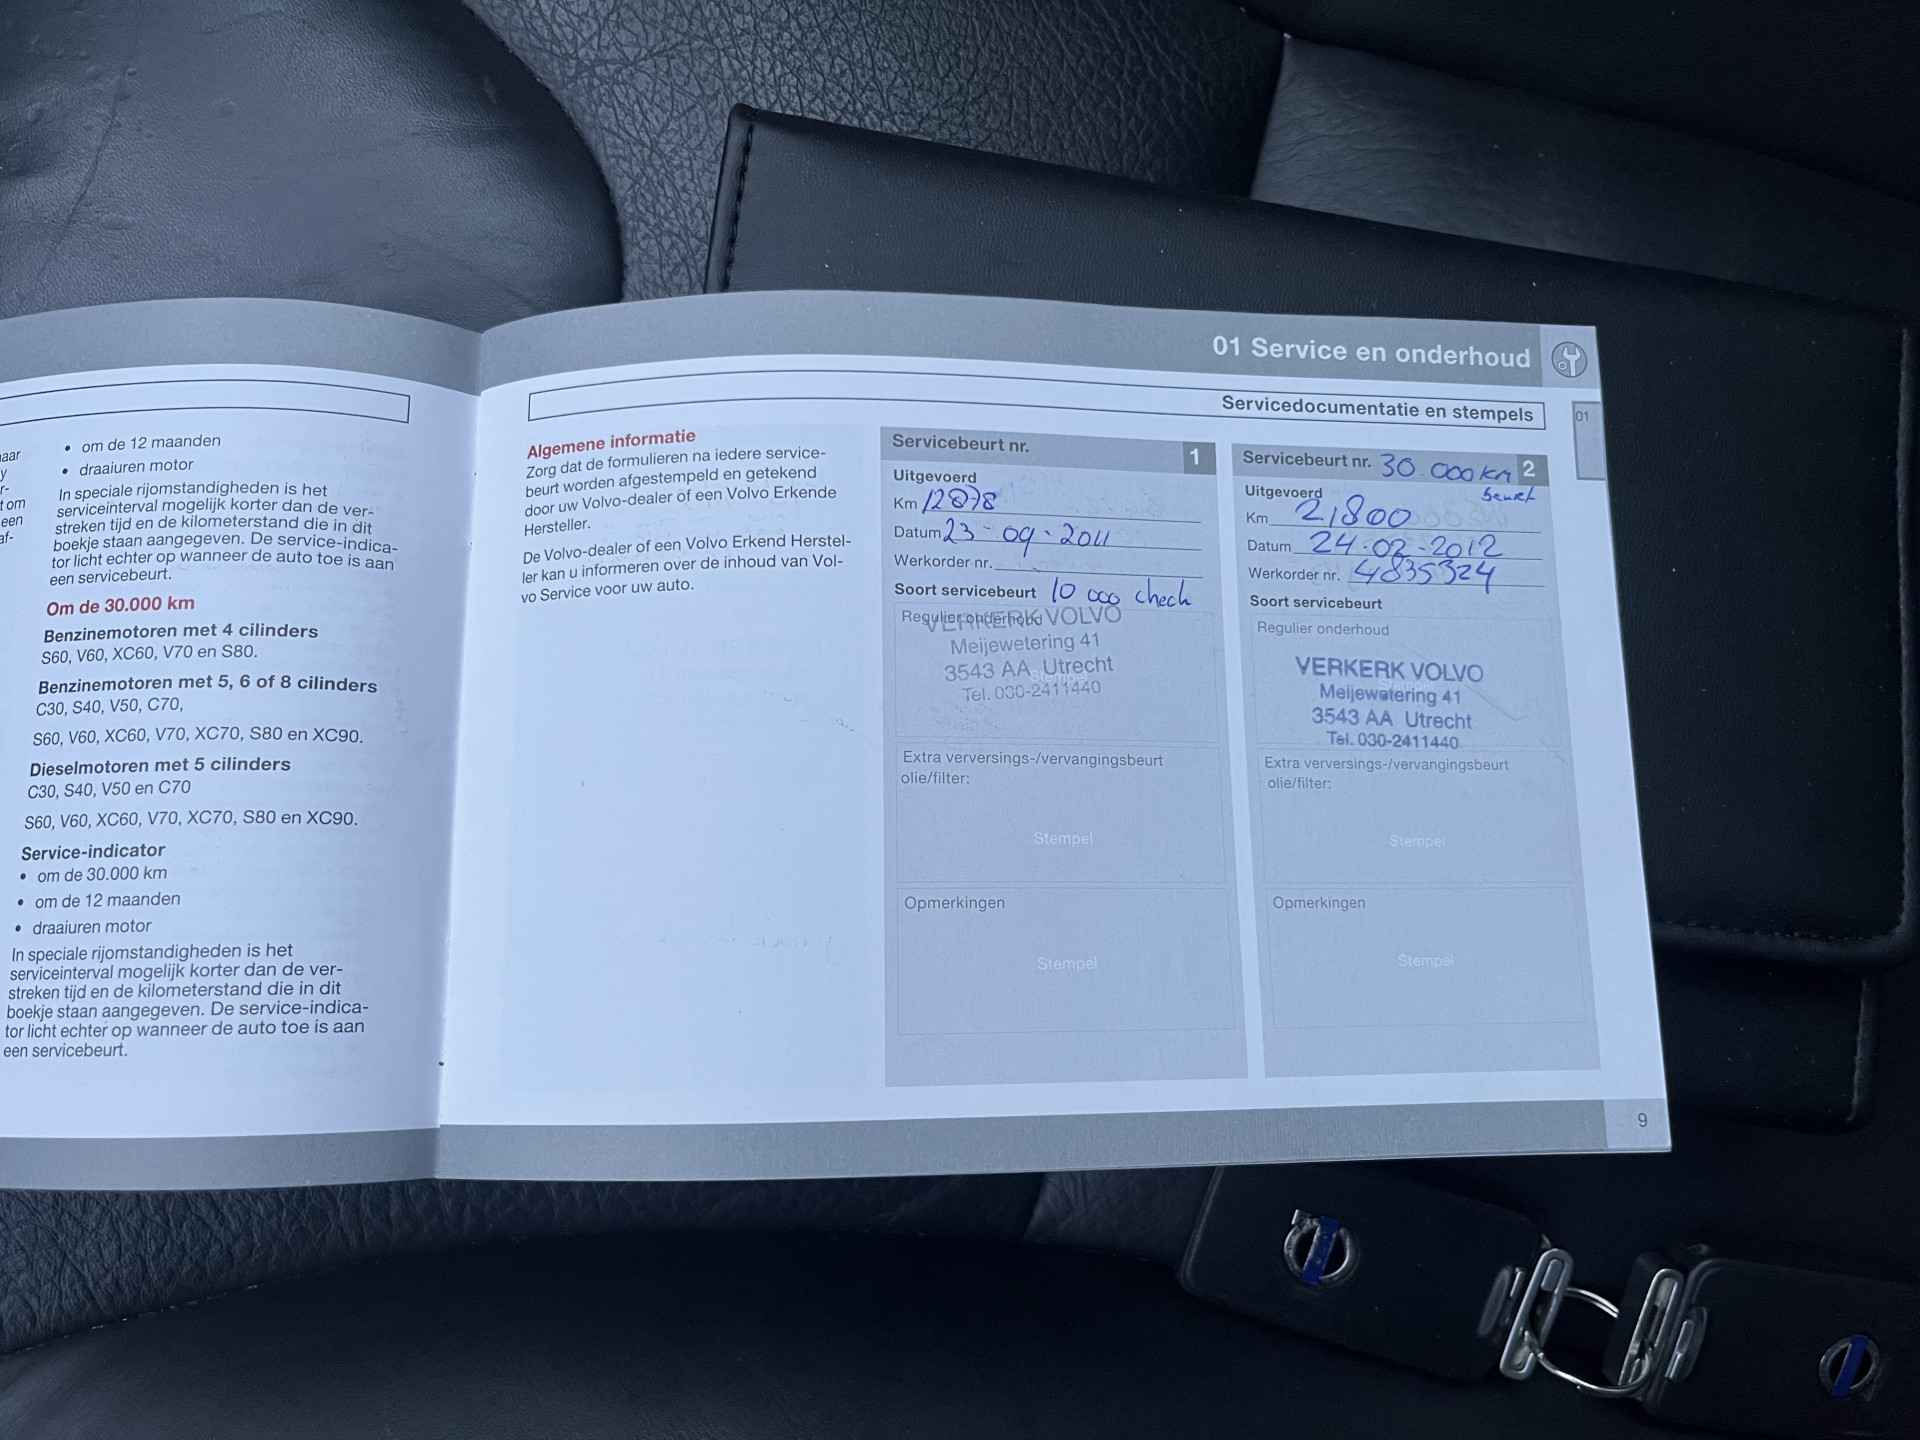 aar
y
r-
t om
een
af-
• om de 12 maanden
• draaiuren motor
In speciale rijomstandigheden is het
serviceinterval mogelijk korter dan de ver-
streken tijd en de kilometerstand die in dit
boekje staan aangegeven. De service-indica-
tor licht echter op wanneer de auto toe is aan
een servicebeurt.
Om de 30.000 km
Benzinemotoren met 4 cilinders
S60, V60, XC60, V70 en S80.
Benzinemotoren met 5, 6 of 8 cilinders
C30, S40, V50, C70,
S60, V60, XC60, V70, XC70, S80 en XC90.
Dieselmotoren met 5 cilinders
C30, S40, V50 en C70
S60, V60, XC60, V70, XC70, S80 en XC90.
Service-indicator
• om de 30.000 km
• om de 12 maanden
• draaiuren motor
In speciale rijomstandigheden is het
serviceinterval mogelijk korter dan de ver-
streken tijd en de kilometerstand die in dit
boekje staan aangegeven. De service-indica-
tor licht echter op wanneer de auto toe is aan
een servicebeurt.
01 Service en onderhoud
Servicedocumentatie en stempels
01
Algemene informatie
Zorg dat de formulieren na iedere service-
beurt worden afgestempeld en getekend
door uw Volvo-dealer of een Volvo Erkende
Hersteller.
De Volvo-dealer of een Volvo Erkend Herstel-
ler kan u informeren over de inhoud van Vol-
vo Service voor uw auto.
Servicebeurt nr. 1
Uitgevoerd
Km 12878
Datum 23-09-2011
Werkorder nr.
Soort servicebeurt 10 000 check
Regulier onderhoud
VERKERK VOLVO
Meijewetering 41
3543 AA Utrecht
Stempel
Tel. 030-2411440
Extra verversings-/vervangingsbeurt
olie/filter:
Stempel
Opmerkingen
Stempel
Servicebeurt nr. 30.000 km 2
beurt
Uitgevoerd
Km 21800
Datum 24-02-2012
Werkorder nr. 4835324
Soort servicebeurt
Regulier onderhoud
VERKERK VOLVO
Meijewetering 41
3543 AA Utrecht
Tel. 030-2411440
Extra verversings-/vervangingsbeurt
olie/filter:
Stempel
Opmerkingen
Stempel
9